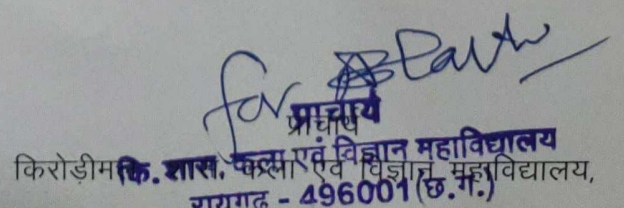 for
प्राचार्य
प्राचार्य
कि. शास. कला एवं विज्ञान महाविद्यालय
किरोड़ीम कला एवं विज्ञान महाविद्यालय,
रायगढ़ - 496001 (छ.ग.)